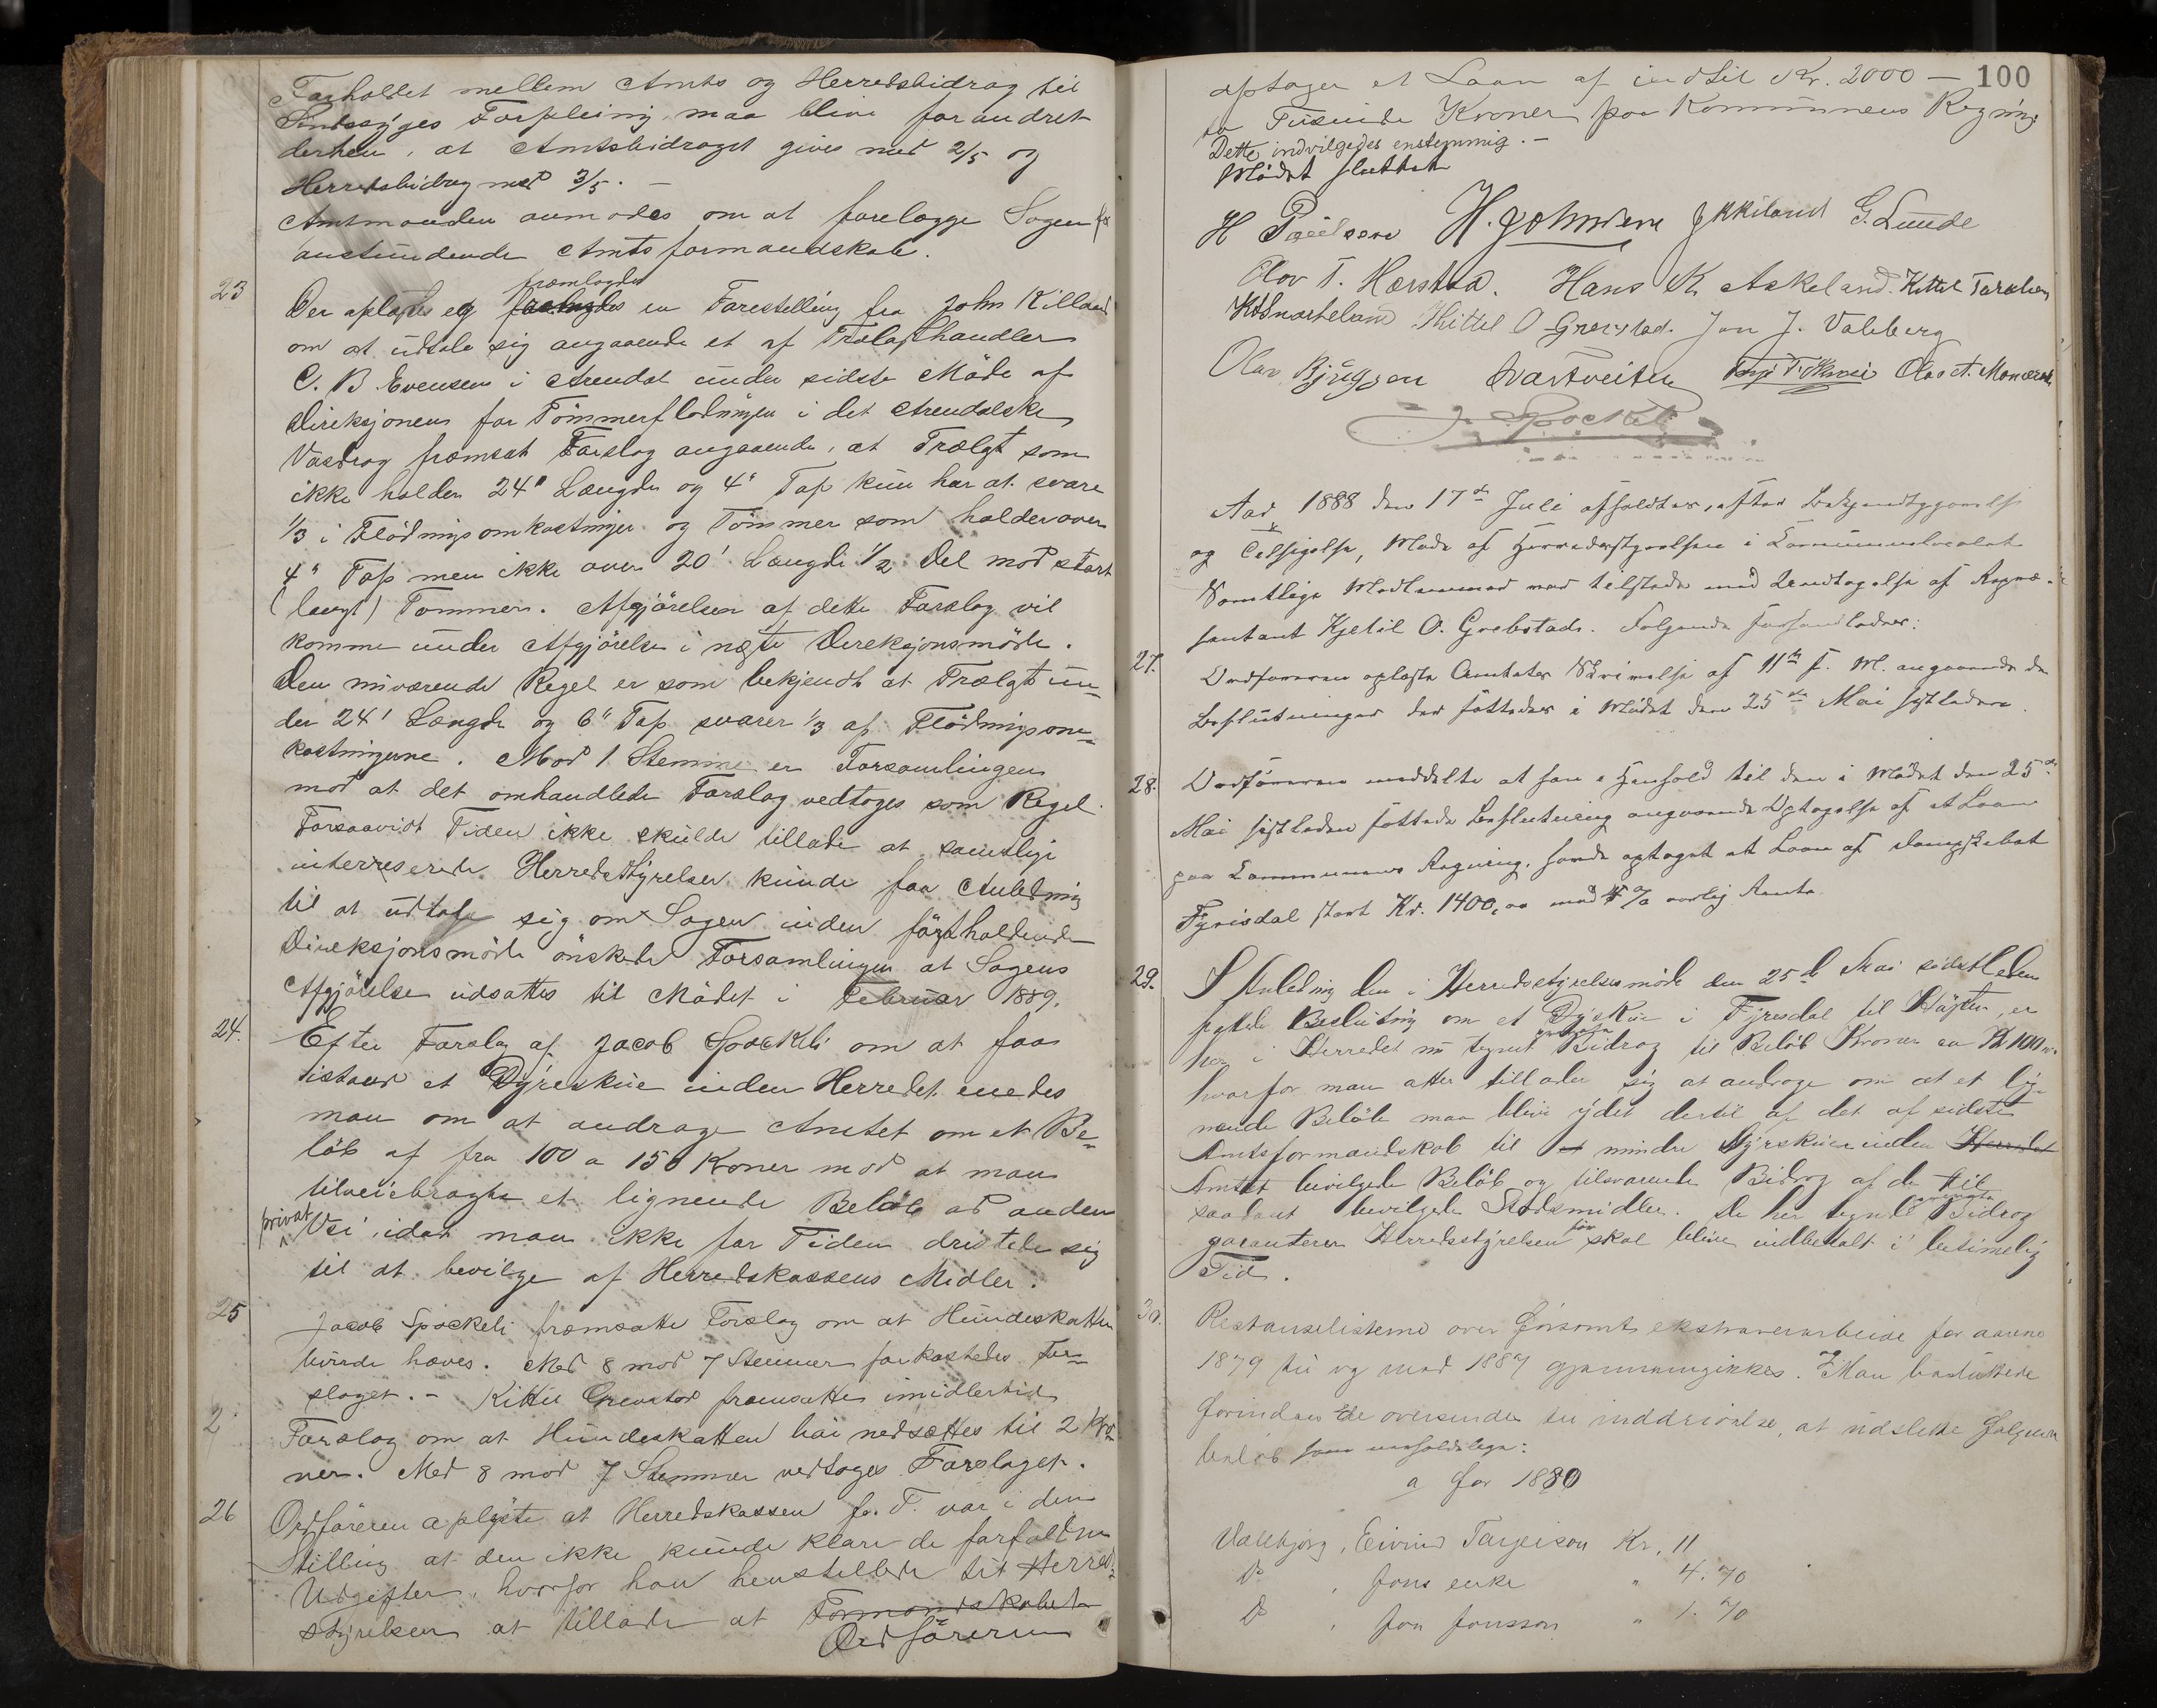 Forholdet mellem Amts og Herredsbidrag til
Sindssyges Forpleining maa blive forandret
derhen, at Amtsbidraget gives med 2/5 og
Herredsbidrag med 3/5. —
Amtmanden anmodes om at forelægge Sagen for
anstundende Amtsformandskab.
23
fræmlagdes
Der oplæstes og en Forestelling fra John Killand
om at udtale sig angaaende et af Trælasthandler
C. B. Evensen i Arendal under sidste Møde af
Direksjonen for Tømmerflødningen i det Arendalske
Vasdrag fræmsat Forslag angaaende, at Trælast som
ikke holder 24" Længde og 4" Top kun har at svare
1/3 i Flødningsomkostninger og Tømmer som holder over
4" Top men ikke over 20' Længde 1/2 Del mod stort
(langt) Tømmer. Afgjørelsen af dette Forslag vil
komme under Afgjørelse i næste Direksjonsmøde.
Den nuværende Regel er som bekjendt at Trælast un=
der 24' Længde og 6" Top svarer 1/3 af Flødningsom=
kostningerne. Mod 1 Stemme er Forsamlingen
mod at det omhandlede Forslag vedtoges som Regel.
Forsaavidt Tiden ikke skulde tillade at samtlige
interreserede Herredsstyrelser kunde faa Anledning
til at udtale sig om Sagen inden førstholdende
Direksjonsmøde ønskede Forsamlingen at Sagens
Afgjørelse udsattes til Mødet i Februar 1889.
24.
Efter Forslag af Jacob Spockeli om at faa
istand et Dyreskue inden Herredet enedes
man om at andrage Amtet om et Be=
løb af fra 100 a 150 Kroner mod at man
tilveiebragte et lignende Beløb ad anden
privat
Vei, idet man ikke for Tiden dristede sig
til at bevilge af Herredskassens Midler.
25
Jacob Spockeli fræmsatte Forslag om at Hundeskatten
burde hæves. Med 8 mod 7 Stemmer forkastedes For=
slaget. — Kittil Grevstad fræmsatte imidlertid
2
Forslag om at Hundeskatten her nedsættes til 2 Kro=
ner. Med 8 mod 7 Stemmer vedtoges Forslaget.
26
Ordføreren oplyste at Herredskassen f. T. var i den
Stilling at den ikke kunde klare de forfaldne
Udgifter, hvorfor han henstillede til Herreds=
styrelsen at tillade at Formandskabet
Ordføreren
100
optager et Laan af indtil Kr. 2000 —
to Tusinde Kroner paa Kommunens Regning.
Dette indvilgedes enstemmig. —
Mødet sluttet
H Poulsen H. Johnsen G. Lunde
Olov T. Hærstad. Hans K. Askeland. Kittel
Kittel O Grevstad. Jon J. Valeberg
Olav Bjuggsen Olav A. Momrak
J. Spockeli
Aar 1888 den 17de Juli afholdtes, efter Bekjendtgjørelse
og Tilsigelse, Møde af Herredsstyrelsen i Kommunelocalet
Samtlige Medlemmer var tilstede med Undtagelse af Repræ-
sentant Kjetil O. Grebstad. Følgende forhandledes:
27.
Ordføreren oplæste Amtets Skrivelse af 11te f. M. angaaende de
Beslutninger der fattedes i Mødet den 25de Mai sistleden.
28.
Ordføreren meddelte at han i Henhold til den i Mødet den 25de
Mai sistleden fattede Beslutning angaaende Optagelse af et Laan
paa Kommunens Regning, havde optaget et Laan af Dampskibet
Fyrisdal stort Kr. 1400,00 mod 4 % aarlig Rente
29.
I Anledning den i Herredsstyrelsesmøde den 25de Mai sidstleden
fattede Beslutning om et Dyrskue i Fyresdal til Høsten, er
her i Herredet nu tegnet Bidrag til Beløb Kroner ca 100
hvorfor man atter tillader sig at andrage om at et lig-
nende Beløb maa blive ydet dertil af det af sidste
Amtsformandskab til et mindre Dyrskuer inden Herredet
Amtet bevilgede Beløb og tilsvarende Bidrag af de til
saadant bevilgede Statsmidler. De her tegnede Bidrag
garanterer Herredsstyrelsen for skal blive indbetalt i betimelig
Tid.
30.
Restanselisterne over forsømt ekstraveiarbeide for aarene
1879 til og med 1887 gjennemgikkes. Man besluttede
forinden de oversendes til inddrivelse, at udslette følgende
beløb som uerholdelige:
a for 1880
Vallbjørg, Eivind Targeison Kr. 11
Do , Jons enke " 4.70
Do , Jon Jonsson " 1.70